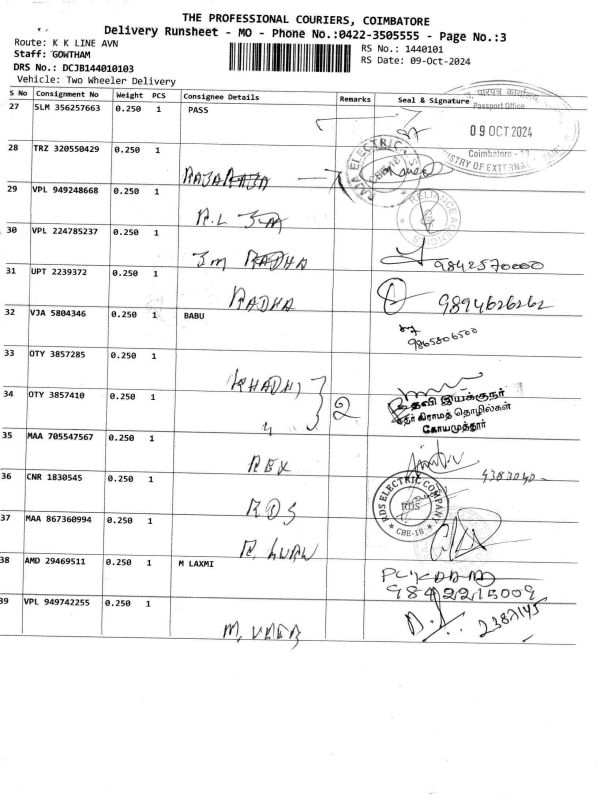 THE PROFESSIONAL COURIERS, COIMBATORE
Delivery Runsheet - MO - Phone No.:0422-3505555 - Page No.:3
Route: K K LINE AVN
RS No.: 1440101
Staff: GOWTHAM
RS Date: 09-Oct-2024
DRS No.: DCJB144010103
Vehicle: Two Wheeler Delivery
S No Consignment No Weight PCS Consignee Details Remarks Seal & Signature
27 SLM 356257663 0.250 1 PASS
Passport Office
09 OCT 2024
Coimbatore
28 TRZ 320550429 0.250 1
RAJA RAJA
RAJA ELECTRIC
29 VPL 949248668 0.250 1
RELIANCE
30 VPL 224785237 0.250 1
Jm RADHA
9842570000
31 UPT 2239372 0.250 1
RADHA
9894626262
32 VJA 5804346 0.250 1 BABU
9865806500
33 OTY 3857285 0.250 1
KHADHI
34 OTY 3857410 0.250 1
2
உதவி இயக்குநர்
கதர் கிராமத் தொழில்கள்
கோயமுத்தூர்
35 MAA 705547567 0.250 1
REX
36 CNR 1830545 0.250 1
RDS
RDS ELECTRIC COMPANY
RDS
CBE-18
37 MAA 867360994 0.250 1
38 AMD 29469511 0.250 1 M LAXMI
9842215009
39 VPL 949742255 0.250 1
2387145